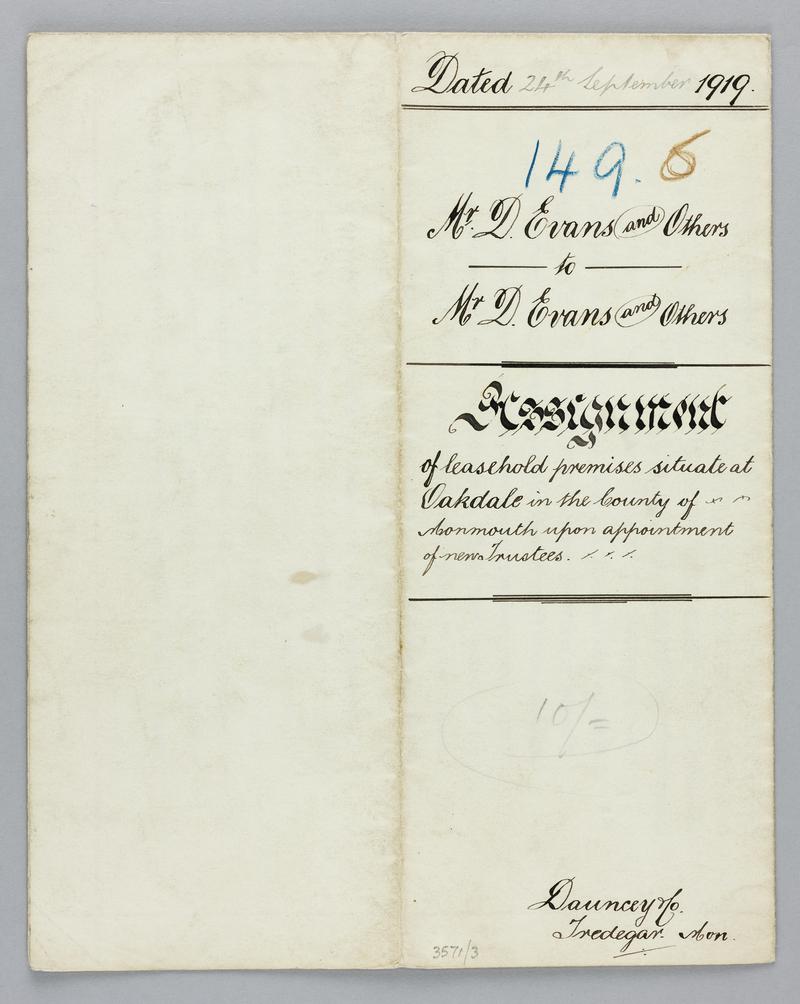 Dated 24th September 1919.
149. 6
Mr. D. Evans and Others
to
Mr D. Evans and Others
Assignment
of leasehold premises situate at
Oakdale in the County of
Monmouth upon appointment
of new Trustees.
10/=
Dauncey & Co.
Tredegar. Mon.
3571/3